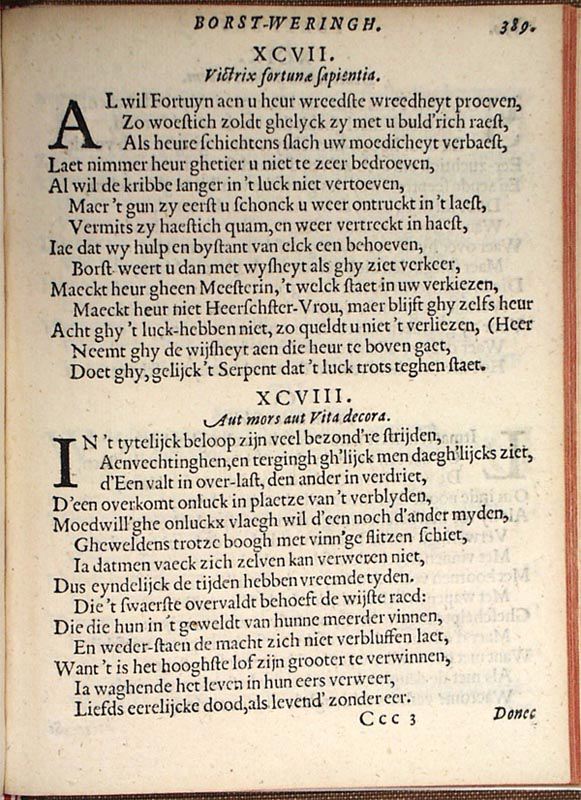 BORST-WERINGH. 389.
XCVII.
Victrix fortunæ sapientia.
AL wil Fortuyn aen u heur wreedste wreedheyt proeven,
Zo woestich zoldt ghelyck zy met u buld'rich raest,
Als heure schichtens slach uw moedicheyt verbaest,
Laet nimmer heur ghetier u niet te zeer bedroeven,
Al wil de kribbe langer in't luck niet vertoeven,
Maer 't gun zy eerst u schonck u weer ontruckt in't laest,
Vermits zy haestich quam, en weer vertreckt in haest,
Iae dat wy hulp en bystant van elck een behoeven,
Borst-weert u dan met wysheyt als ghy ziet verkeer,
Maeckt heur gheen Meesterin, 't welck staet in uw verkiezen,
Maeckt heur niet Heerschster-Vrou, maer blijft ghy zelfs heur
Acht ghy 't luck-hebben niet, zo queldt u niet 't verliezen, (Heer
Neemt ghy de wijsheyt aen die heur te boven gaet,
Doet ghy, gelijck 't Serpent dat 't luck trots teghen staet.
XCVIII.
Aut mors aut Vita decora.
IN 't tytelijck beloop zijn veel bezond're strijden,
Aenvechtinghen, en tergingh gh'lijck men daegh'lijcks ziet,
d'Een valt in over-last, den ander in verdriet,
D'een overkomt onluck in plaetze van 't verblyden,
Moedwill'ghe onluckx vlaegh wil d'een noch d'ander myden,
Gheweldens trotze boogh met vinn'ge flitzen schiet,
Ia datmen vaeck zich zelven kan verweren niet,
Dus eyndelijck de tijden hebben vreemde tyden.
Die 't swaerste overvaldt behoeft de wijste raed:
Die die hun in 't geweldt van hunne meerder vinnen,
En weder-staen de macht zich niet verbluffen laet,
Want 't is het hooghste lof zijn grooter te verwinnen,
Ia waghende het leven in hun eers verweer,
Liefds eerelijcke dood, als levend' zonder eer.
Ccc 3 Donec